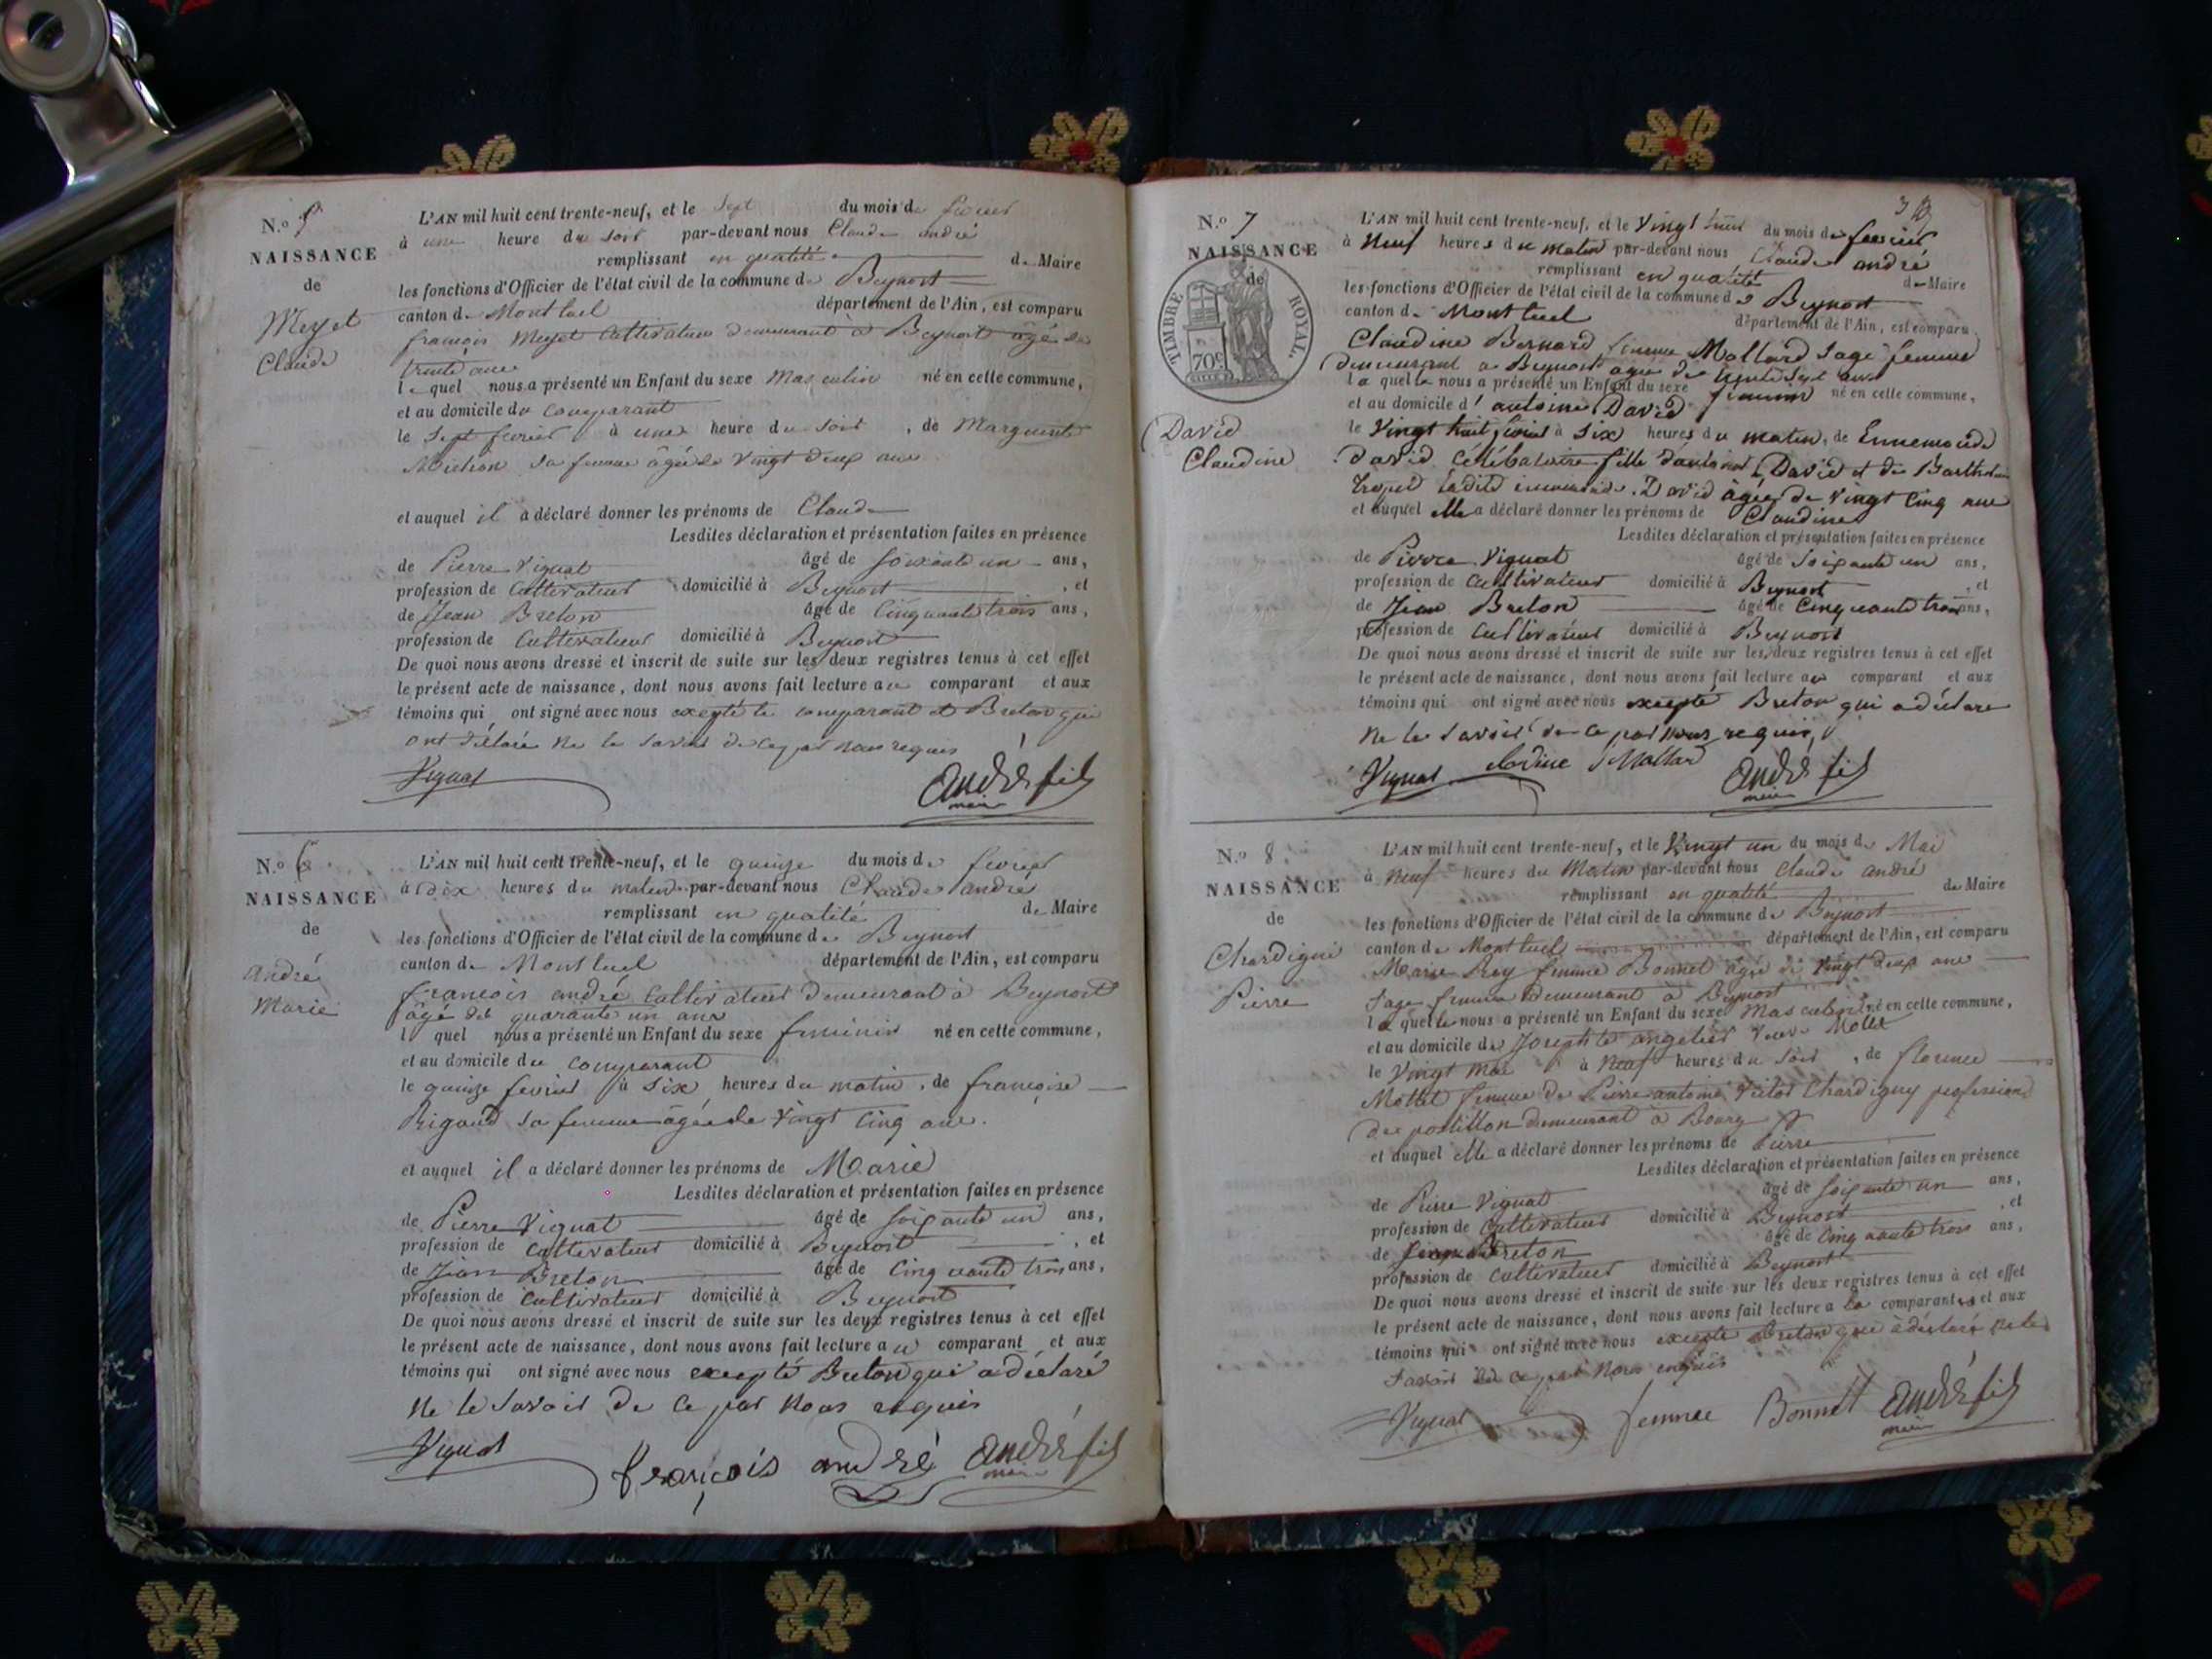 N.o 5
NAISSANCE
de
Meyet
Claude
L'AN mil huit cent trente-neuf, et le Sept du mois de fevrier
à une heure du soir par-devant nous Claude andré
remplissant en qualité de Maire
les fonctions d'Officier de l'état civil de la commune de Beynost
canton de Montluel département de l'Ain, est comparu
francois Meyet Cultivateur demeurant à Beynost âgé de
trente ans
lequel nous a présenté un Enfant du sexe Masculin né en cette commune,
et au domicile du comparant
le Sept fevrier à une heure du soir, de Marguerite
sa femme âgée de vingt deux ans
et auquel il a déclaré donner les prénoms de Claude
Lesdites déclaration et présentation faites en présence
de Pierre Viguat âgé de soixante un ans,
profession de Cultivateur domicilié à Beynost, et
de Jean Breton âgé de Cinquante trois ans,
profession de Cultivateur domicilié à Beynost
De quoi nous avons dressé et inscrit de suite sur les deux registres tenus à cet effet
le présent acte de naissance, dont nous avons fait lecture au comparant et aux
témoins qui ont signé avec nous excepté le comparant et Breton qui
ont déclaré ne le savoir de ce par nous requis
Viguat André fils
maire
N.o 6
NAISSANCE
de
André
Marie
L'AN mil huit cent trente-neuf, et le quinze du mois de fevrier
à dix heures du matin par-devant nous Claude andré
remplissant en qualité de Maire
les fonctions d'Officier de l'état civil de la commune de Beynost
canton de Montluel département de l'Ain, est comparu
francois andré Cultivateur demeurant à Beynost
âgé de quarante un ans
l quel nous a présenté un Enfant du sexe feminin né en cette commune,
et au domicile du comparant
le quinze fevrier à six heures du matin, de francoise
Rigaud sa femme âgée de vingt cinq ans.
et auquel il a déclaré donner les prénoms de Marie
Lesdites déclaration et présentation faites en présence
de Pierre Viguat âgé de soixante un ans,
profession de Cultivateur domicilié à Beynost, et
de Jean Breton âgé de Cinquante trois ans,
profession de Cultivateur domicilié à Beynost
De quoi nous avons dressé et inscrit de suite sur les deux registres tenus à cet effet
le présent acte de naissance, dont nous avons fait lecture au comparant et aux
témoins qui ont signé avec nous excepté Breton qui a déclaré
ne le savoir de ce par nous requis
Viguat françois andré André fils
maire
3
N.o 7
NAISSANCE
de
TIMBRE ROYAL.
70c.
David
Claudine
L'AN mil huit cent trente-neuf, et le Vingt huit du mois de fevrier
à Neuf heures du matin par-devant nous Claude andré
remplissant en qualité de Maire
les fonctions d'Officier de l'état civil de la commune de Beynost
canton de Montluel département de l'Ain, est comparu
Claudine Bernard femme Mollard sage femme
demeurant a Beynost agée de trente sept ans
laquelle nous a présenté un Enfant du sexe feminin né en cette commune,
et au domicile d'antoine David
le Vingt huit fevrier à six heures du matin, de Ennemonde
David célébataire fille d'antoine David et de
ladite ennemonde David âgée de vingt cinq ans
et auquel elle a déclaré donner les prénoms de Claudine
Lesdites déclaration et présentation faites en présence
de Pierre Viguat âgé de soixante un ans,
profession de Cultivateur domicilié à Beynost, et
de Jean Breton âgé de Cinquante trois ans,
profession de Cultivateur domicilié à Beynost
De quoi nous avons dressé et inscrit de suite sur les deux registres tenus à cet effet
le présent acte de naissance, dont nous avons fait lecture au comparant et aux
témoins qui ont signé avec nous excepté Breton qui a déclaré
ne le savoir de ce par nous requis
Viguat clodine Mollar André fils
maire
N.o 8
NAISSANCE
de
Chardigni
Pierre
L'AN mil huit cent trente-neuf, et le Vingt un du mois de Mai
à Neuf heures du Matin par-devant nous Claude andré
remplissant en qualité de Maire
les fonctions d'Officier de l'état civil de la commune de Beynost
canton de Montluel département de l'Ain, est comparu
Marie Rey femme Bonnet âgée de vingt deux ans
sage femme demeurant à Beynost
laquelle nous a présenté un Enfant du sexe Masculin né en cette commune,
et au domicile de angelier Veuve Mottet
le Vingt mai à Neuf heures du soir, de florence
Mottet femme de Pierre antoine Victor Chardigny profession
de postillon demeurant à Bourg
et auquel elle a déclaré donner les prénoms de Pierre
Lesdites déclaration et présentation faites en présence
de Pierre Viguat âgé de soixante un ans,
profession de Cultivateur domicilié à Beynost, et
de Jean Breton âgé de Cinquante trois ans,
profession de Cultivateur domicilié à Beynost
De quoi nous avons dressé et inscrit de suite sur les deux registres tenus à cet effet
le présent acte de naissance, dont nous avons fait lecture a la comparante et aux
témoins qui ont signé avec nous excepté Breton qui a déclaré ne le
savoir de ce par nous enquis
Viguat femme Bonnet André fils
maire